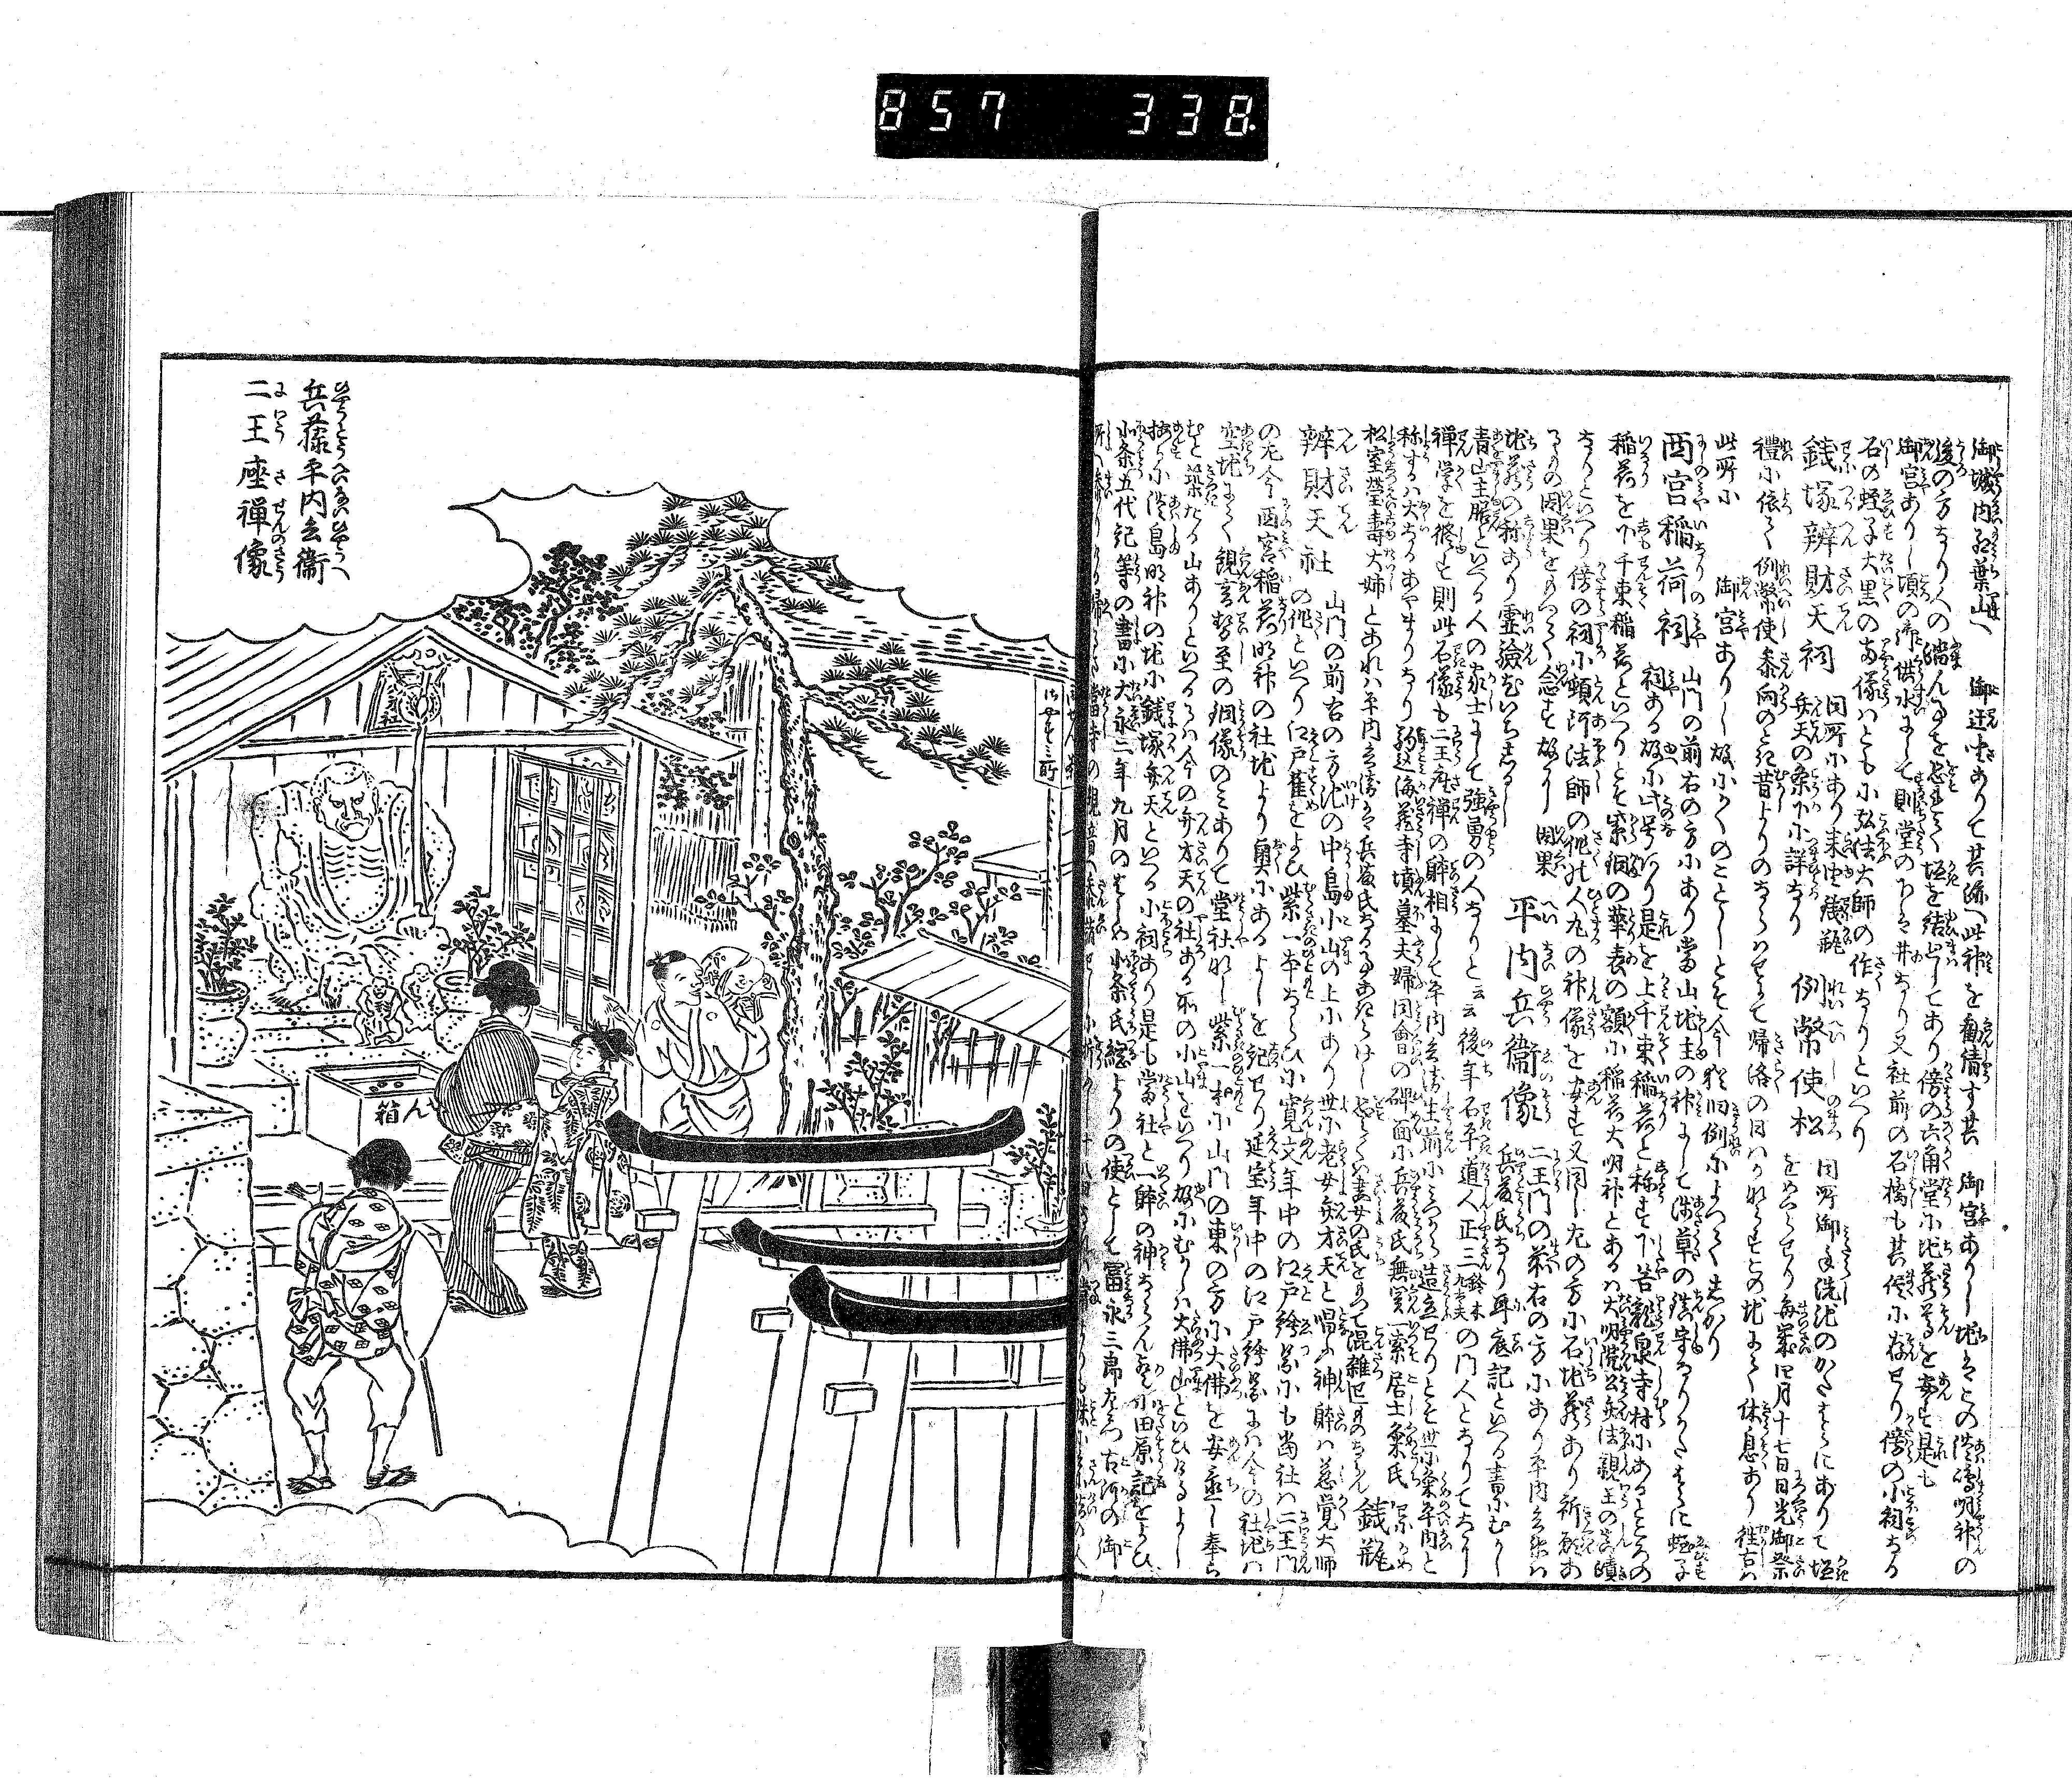 857 338.
御城内紅葉山へ 御遷坐ありて其跡へ此神を勧請す其 御宮ありし地はとの淡嶋明神の
後の方なり人の踏ん事を恐れて垣を結置してあり傍の六角堂に地蔵尊を安す是も
御宮ありし頃の御供水にして則堂の下は井なり又社前の石橋も其侭に存せり傍の小祠なる
石の蛭子大黒の両像はともに弘法大師の作なりといへり
銭塚辨財天祠 同所にあり
弁天の条下に詳なり
例幣使松 同所御手洗池のかたはらにありて垣
をめくらせり毎歳四月十七日日光御祭
禮に依て例幣使参向のとき昔よりのならはせにて帰洛の日はかならすこの地にて休息あり往古は
此所に 御宮ありし故にかくのことしとそ今猶旧例によつてしかり
西宮稲荷祠 山門の前右の方にあり当山地主の神にして浅草の鎮守なりかたはらに蛭子
祠ある故に此号あり是を上千束稲荷と称す下谷龍泉寺村にあるところの
稲荷を下千束稲荷といへりとそ紫銅の華表の額に稲荷大明神とあるは大明院公弁法親王の真蹟
なりといへり傍の祠に頓阿法師の作の人丸の神像を安す又同し左の方に石地蔵あり祈願あ
るもの因果をもつて念す故に因果
地蔵の称あり霊験尤いちしるし
平内兵衛像 二王門の前右の方にあり平内兵衛は
兵藤氏なり耳底記といへる書にむかし
青山主膳といへる人の家士にして強勇の人なりと云云後年石平道人正三鈴木九太夫の門人となりてなり
禅学を修す則此石像も二王座禅の躰相にして平内兵衛生前にみつから造立せりとそ世に粂平内と
称するは大なるあやまりなり駒込海蔵寺墳墓夫婦同會の碑面に兵藤氏無実一索居士粂氏
松室瑩寿大姉とあれは平内兵衛は兵藤氏なる事あきらけし恐くは妻女の氏をもつて混雑せるのならん
銭瓶
辨財天社 山門の前右の方池の中島小山の上にあり世に老女弁才天と唱ふ神躰は慈覚大師
の作といへり江戸雀をよひ紫一本ならひに寛文年中の江戸絵図にも当社は二王門
の左今西宮稲荷明神の社地より奥にあるよしを記せり延宝年中の江戸絵図には今の社地は
空地にて観音勢至の銅像のみありて堂社なし紫一本に山門の東の方に大佛を安置し奉ら
むと築たる山ありといへるは今の弁才天の社ある所の小山をいへり故にむかしは大佛山といひけるよし
按に淡島明神の地に銭塚弁天といへる小祠あり是も当社と一躰の神ならん歟小田原記をよひ
小条五代紀等の書に大永二年九月のはしめ小条氏綱よりの使として冨永三郎左衛門古河の御
兵藤平内兵衛
二王座禅像
箱